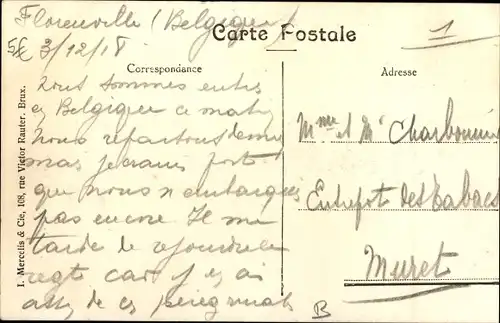 Florenville (Belgique)
5€ 3/12/18
Carte Postale
1
Correspondance
Adresse
I. Mercelis & Cie, 108, rue Victor Rauter. Brux.
Nous sommes entrés
en Belgique ce matin
Nous repartons demain
mais je crains fort
que nous n'embarquions
pas encore. Il me
tarde de rejoindre le
regt car j'en ai
assez de ces
Mme et Mr Charbonnié
Entrepôt des Tabacs
Muret
B